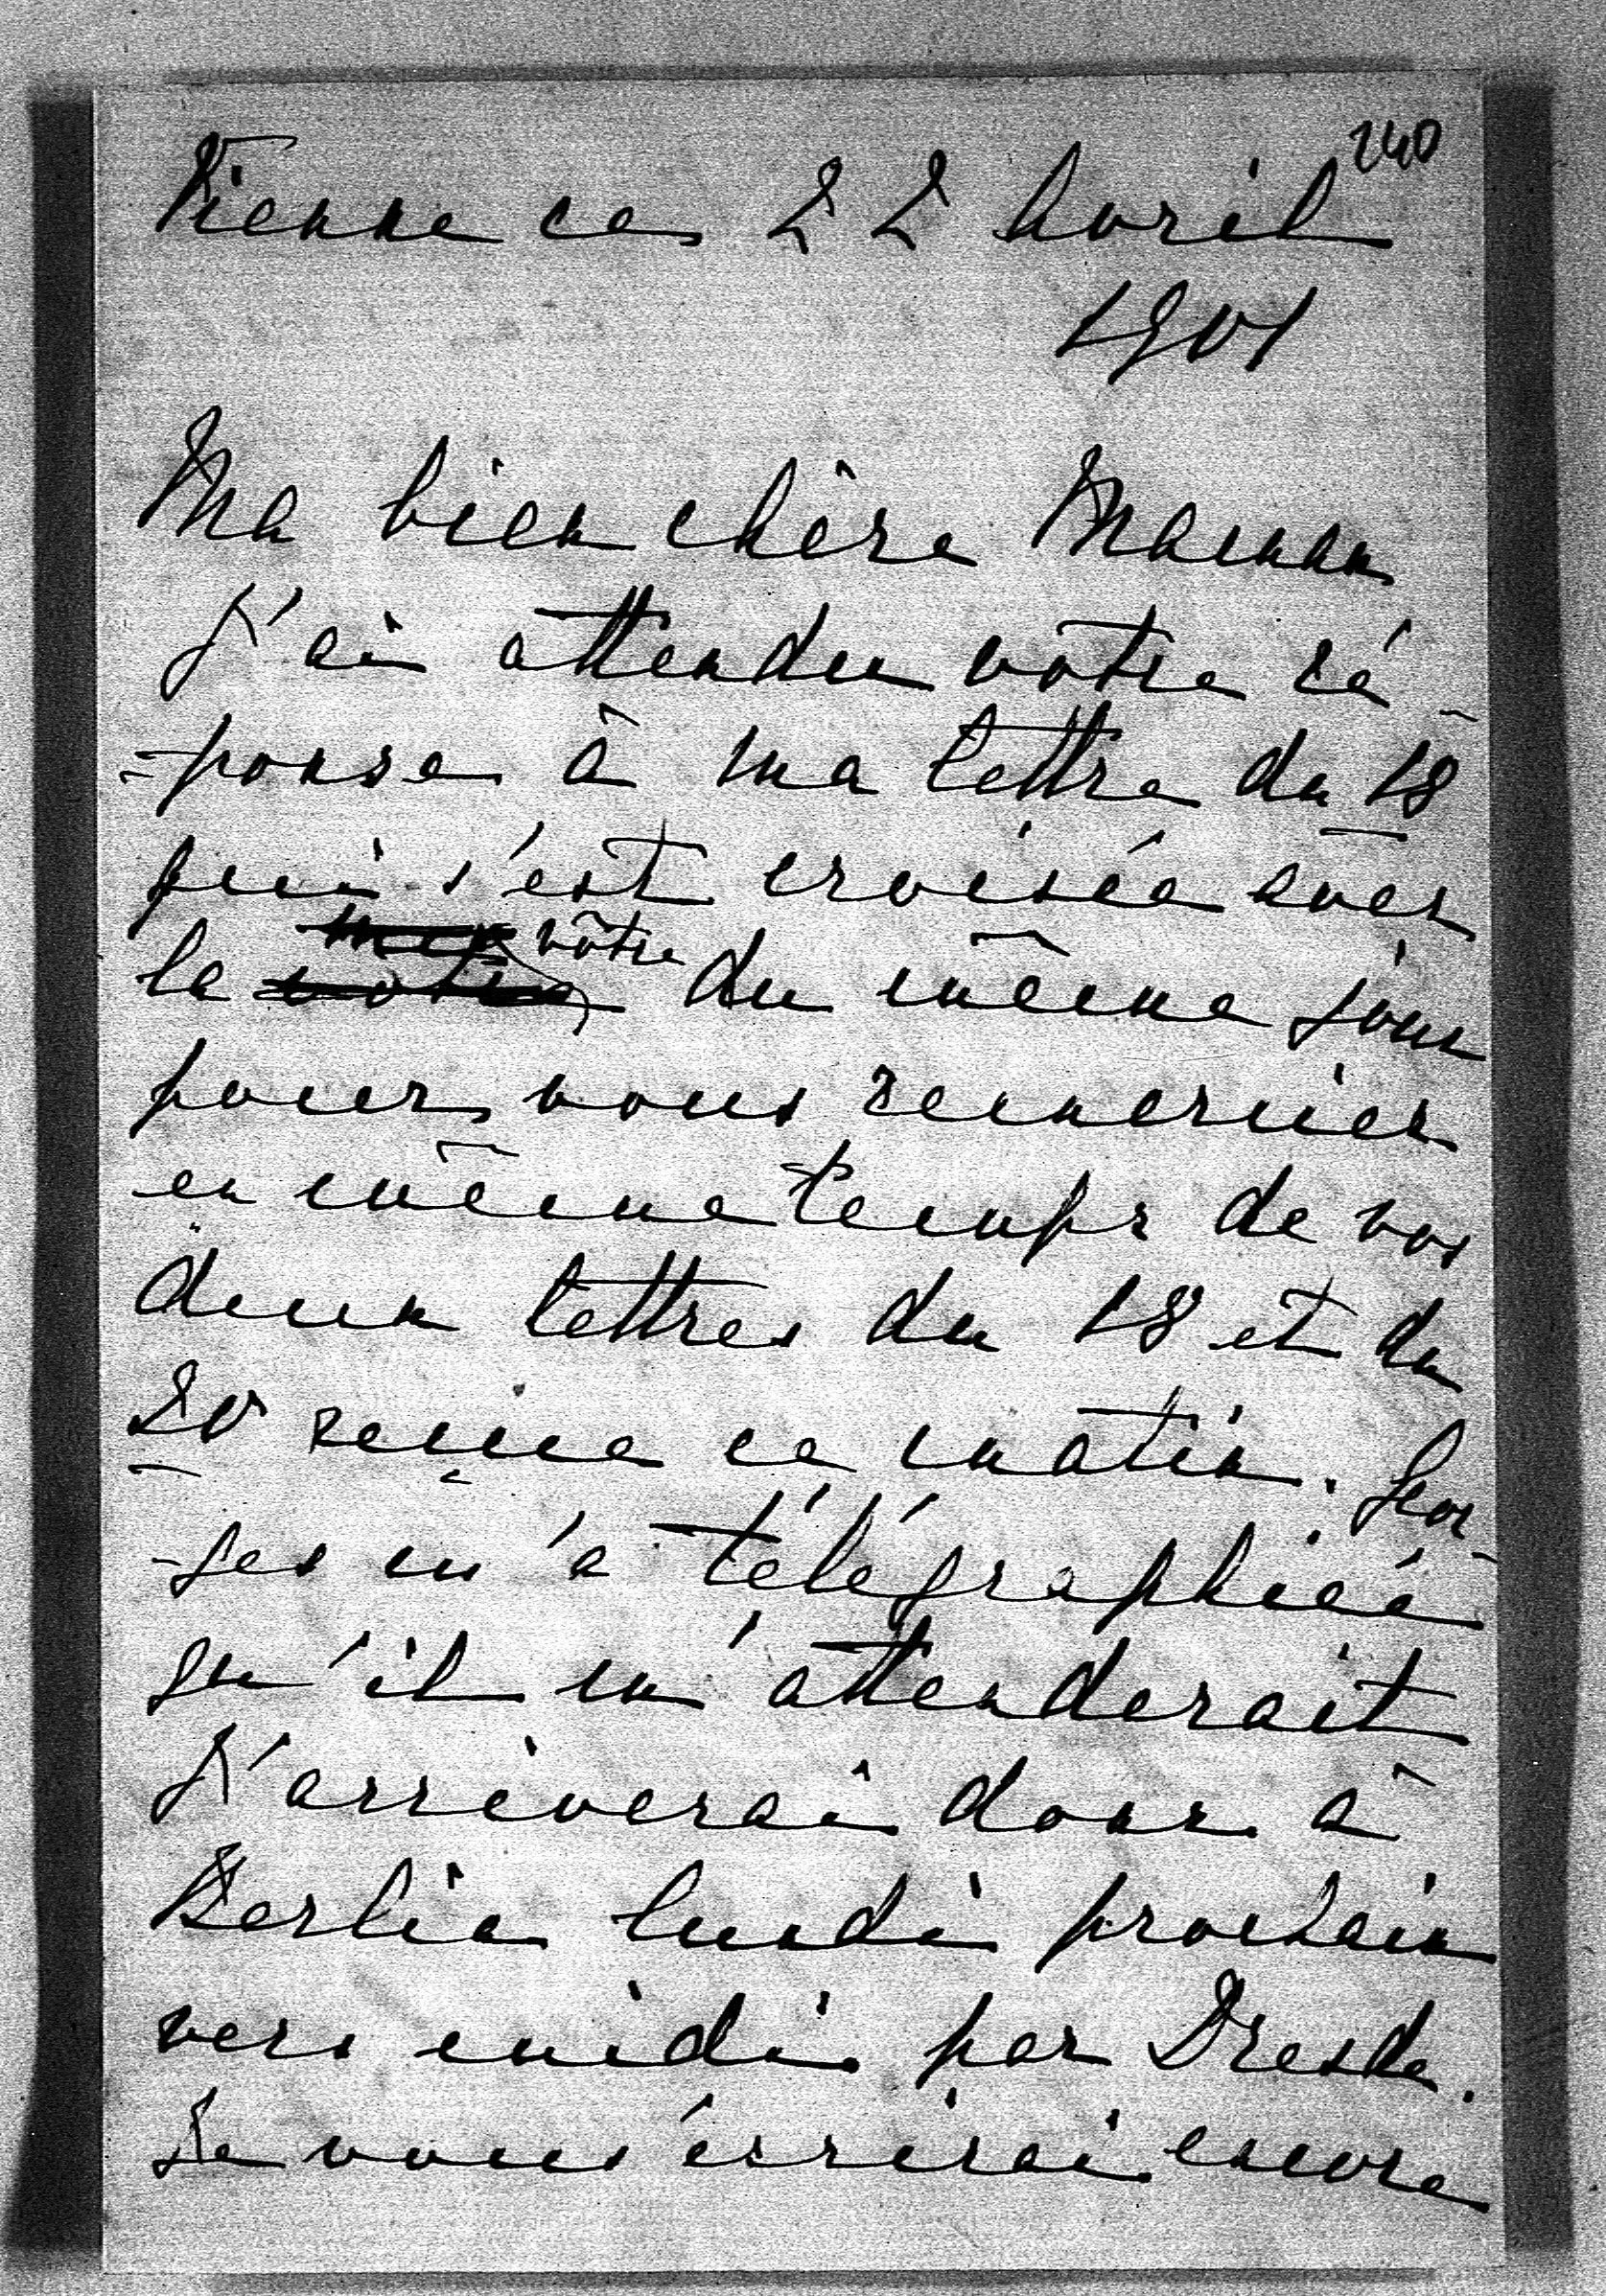 240
Vienne ce 22 Avril
1901
Ma bien chère Maman
J'ai attendu votre ré-
-ponse à ma lettre du 18
qui s'est croisée avec
la vôtre du même jour
pour vous remercier
en même temps de vos
deux lettres du 18 et du
20 reçue ce matin. Geor-
-ges m'a télégraphié
qu'il m'attenderait
J'arriverai donc à
Berlin lundi prochain
vers midi par Dresde.
Je vous écrirai encore